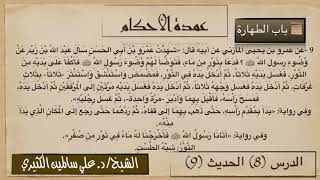 عمدة الأحكام
باب الطهارة
9 -عن عمرو بن يحيى المازني عن أبيه قال: «شهدت عمرو بن أبي الحسن سأل عبد الله بن زيد عن
وضوء رسول الله ﷺ؟ فدعا بتور من ماء، فتوضأ لهم وضوء رسول الله ﷺ فأكفأ على يديه من
التور، فغسل يديه ثلاثا، ثم أدخل يده في التور، فمضمض واستنشق واستنثر -ثلاثا- بثلاث
غرفات، ثم أدخل يده فغسل وجهه ثلاثا، ثم أدخل يده في التور، فغسلهما مرتين إلى المرفقين، ثم أدخل يده في التور،
فمسح رأسه، فأقبل بهما وأدبر -مرة واحدة-، ثم غسل رجليه».
وفي رواية: «بدأ بمقدم رأسه، حتى ذهب بهما إلى قفاه، ثم ردهما حتى رجع إلى المكان الذي بدأ
منه».
وفي رواية: «أتانا رسول الله ﷺ فأخرجنا له ماء في تور من صفر».
التور: شبه الطست.
الدرس (8) الحديث (9)
الشيخ/د. علي سالمين الكثيري